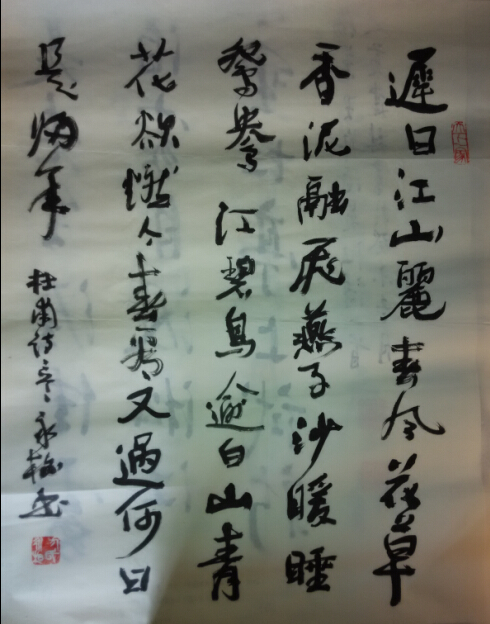 遲日江山麗春风花草
香泥融飛燕子沙暖睡
鴛鴦江碧鳥逾白山青
花欲燃今春看又過何日
是归年
杜甫诗意